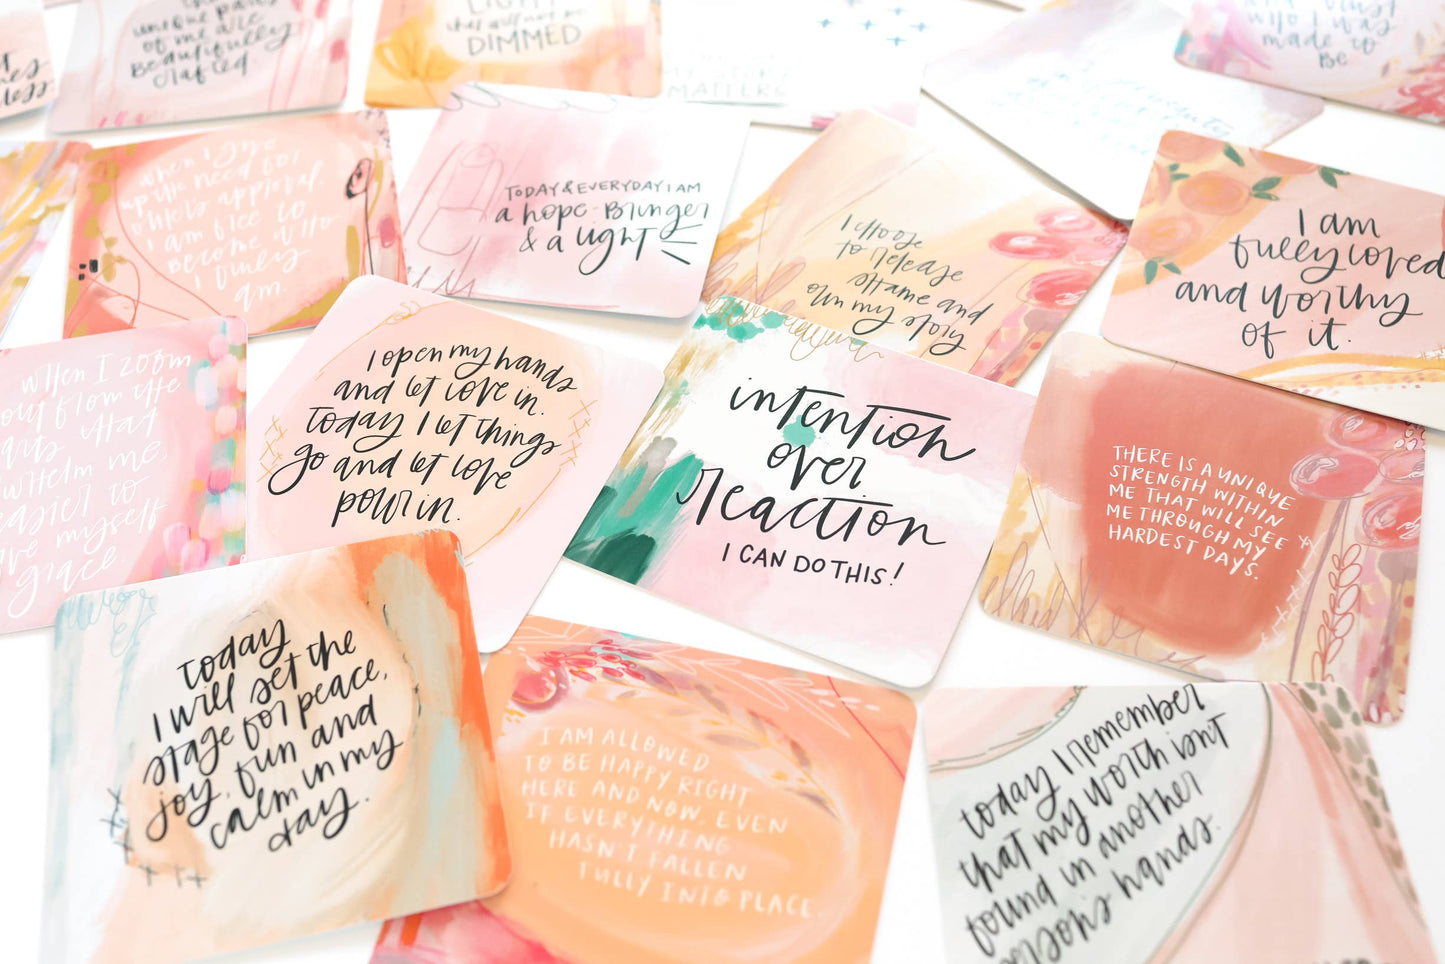 unique parts
of me are
beautifully
crafted
LIGHT
that will not be
DIMMED
MY STORY
MATTERS
and trust
who I was
made to
Be
when I give
up the need for
other's approval,
I am free to
become who
I truly
am.
TODAY & EVERYDAY I AM
a hope-Bringer
& a light
I choose
to release
shame and
own my story
I am
fully loved
and worthy
of it.
when I zoom
out from the
that
me,
easier to
myself
grace.
I open my hands
and let love in.
Today I let things
go and let love
pour in.
intention
over
reaction
I CAN DO THIS!
THERE IS A UNIQUE
STRENGTH WITHIN
ME THAT WILL SEE
ME THROUGH MY
HARDEST DAYS.
today
I will set the
stage for peace,
joy, fun and
calm in my
day.
I AM ALLOWED
TO BE HAPPY RIGHT
HERE AND NOW, EVEN
IF EVERYTHING
HASN'T FALLEN
FULLY INTO PLACE.
today I remember
that my worth isn't
found in another
person's hands.